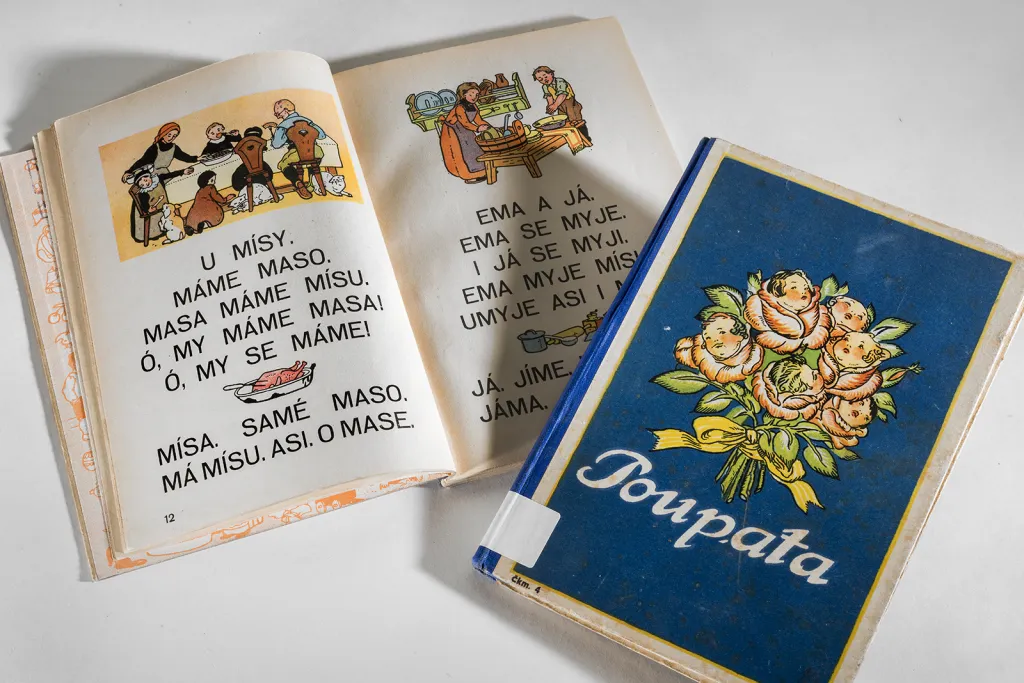 U MÍSY.
MÁME MASO.
MASA MÁME MÍSU.
Ó, MY MÁME MASA!
Ó, MY SE MÁME!
MÍSA. SAMÉ MASO.
MÁ MÍSU. ASI. O MASE.
12
EMA A JÁ.
EMA SE MYJE.
I JÁ SE MYJI.
EMA MYJE
UMYJE ASI I
JÁ. JÍME.
JÁMA.
Poupata
čkm. 4